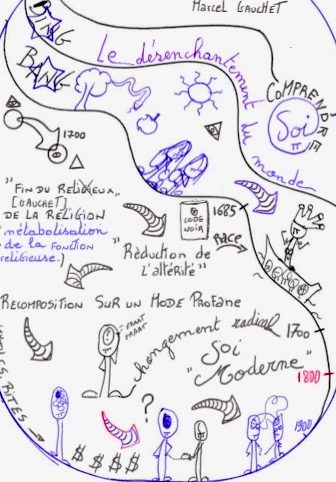 MARCEL GAUCHET
BANG
Le désenchantement du monde
COMPRENDRE
Soi
1700
"FIN DU RELIGIEUX"
[GAUCHET]
DE LA RELIGION
(métabolisation
de la FONCTION
religieuse.)
CODE
NOIR
1685
RACE
"Réduction de
l'altérité"
RECOMPOSITION SUR UN MODE PROFANE
changement radical
1700
Soi
"Moderne"
1800
RITES
?
$ $ $ $
1900